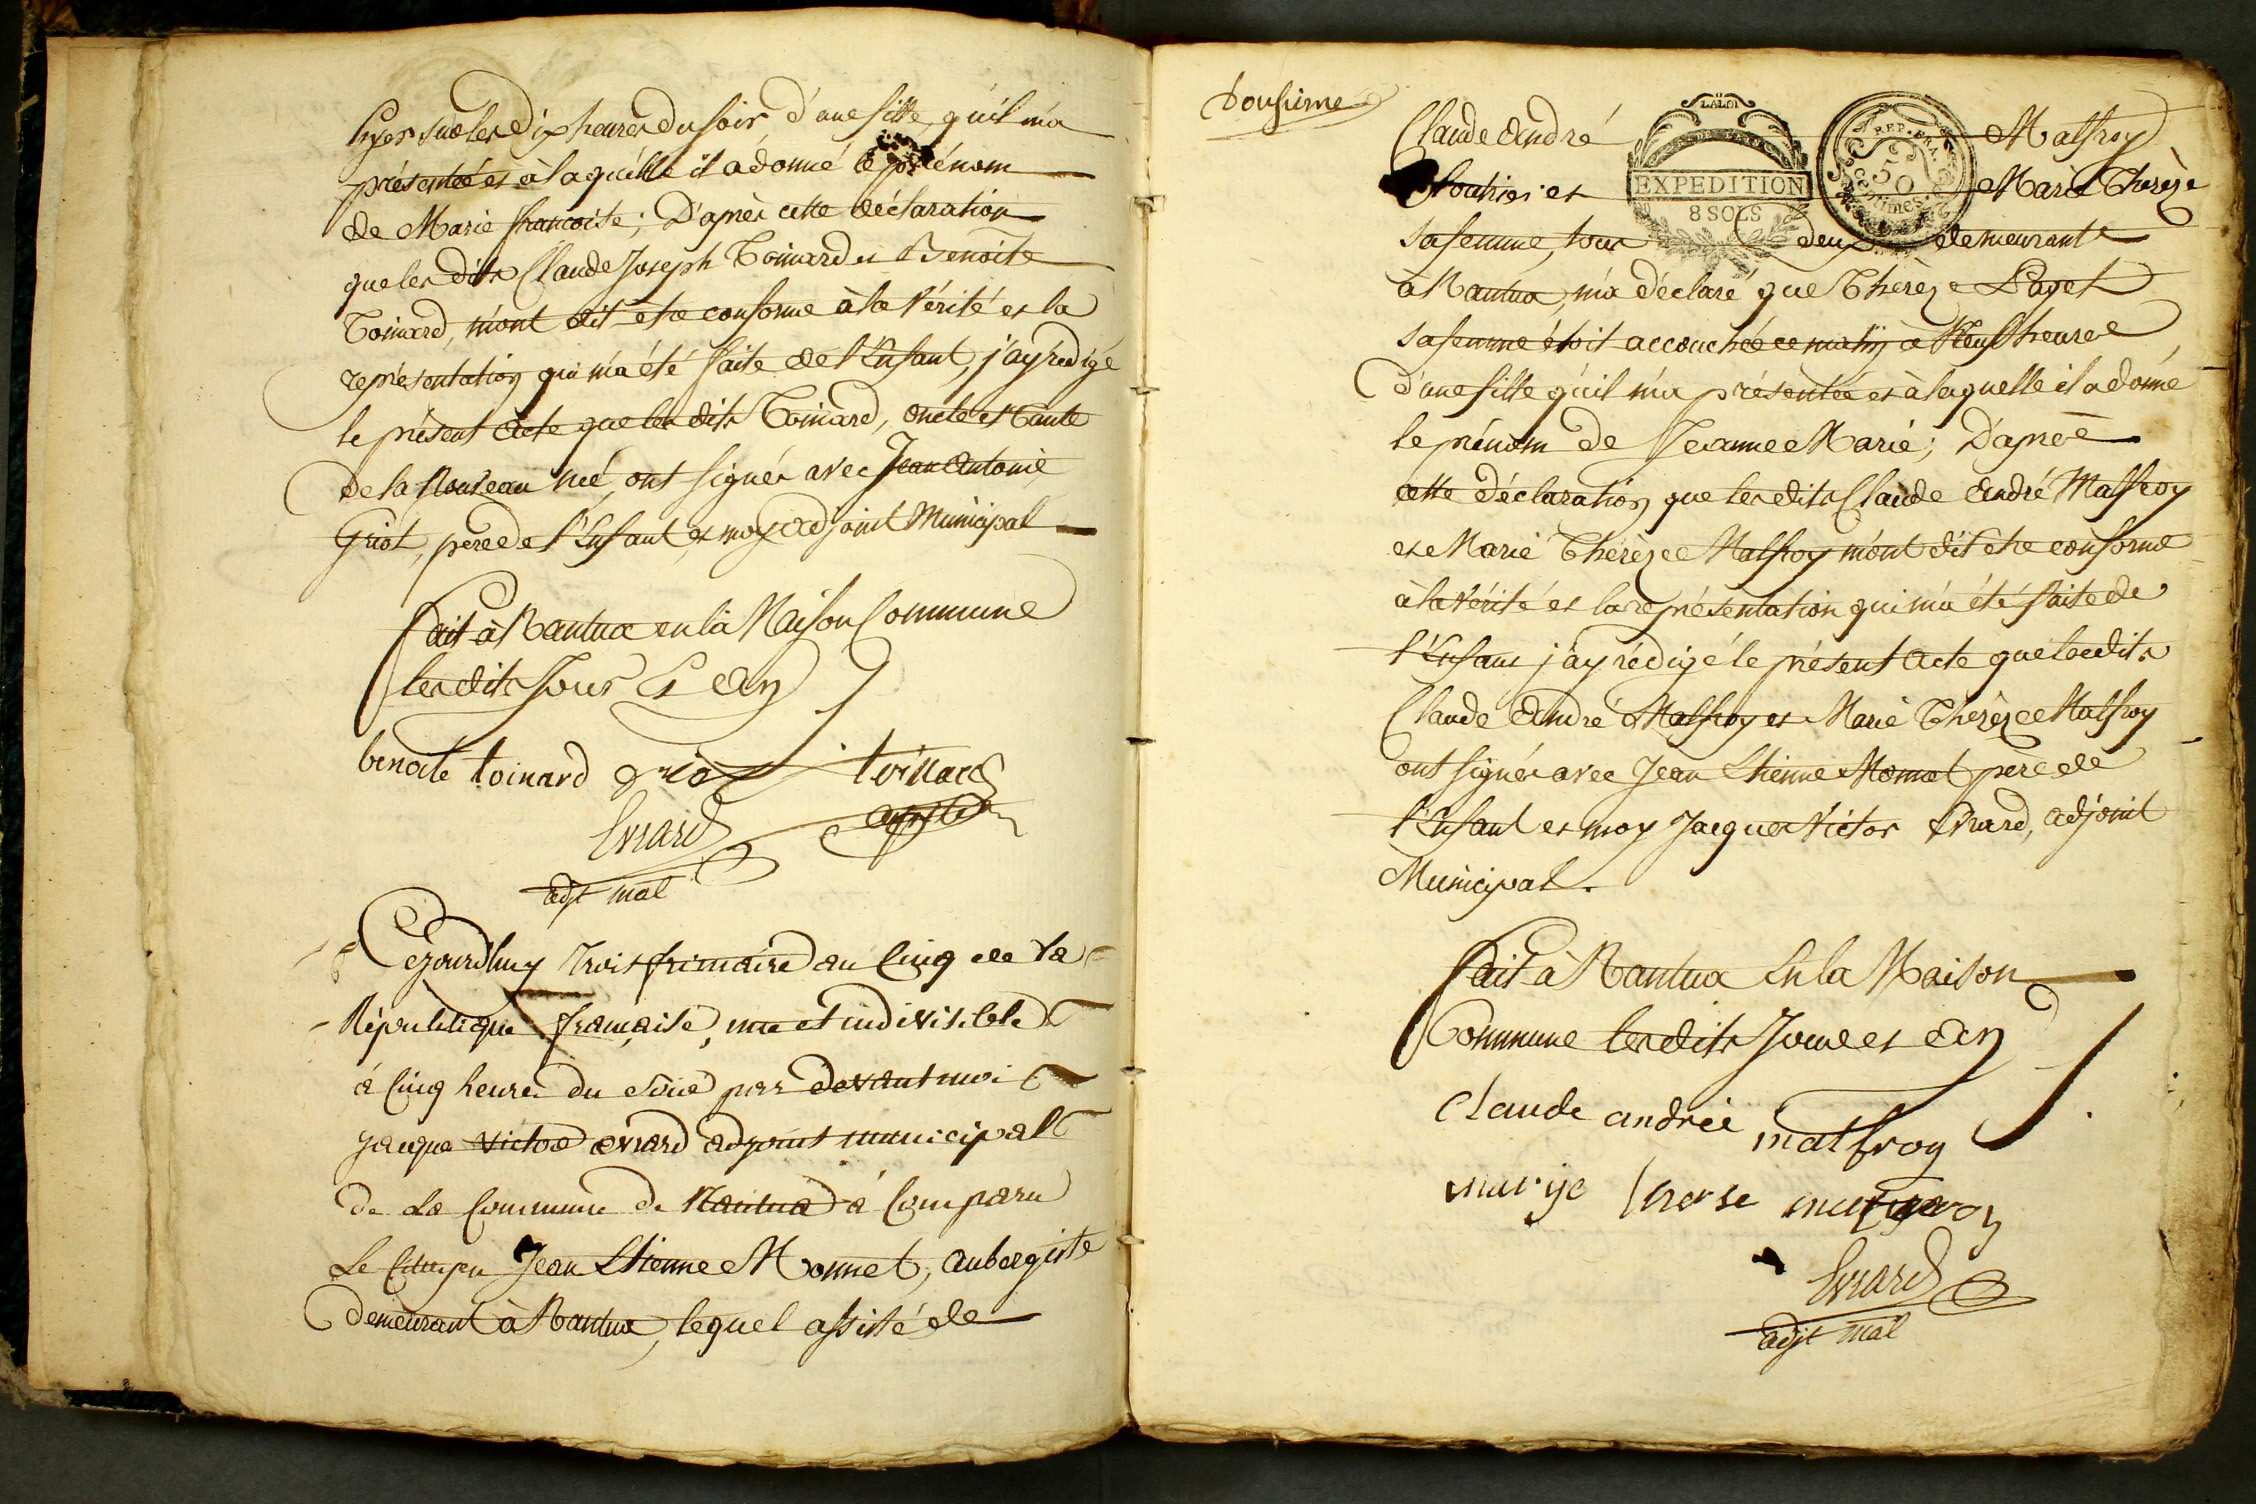 hyer sur les dix heures du soir, d'une fille, qu'il m'a
présentée et à laquelle il a donné le prénom
de Marie francoise; D'après cette déclaration
que les dits Claude Joseph Toinard et Benoite
Toinard, m'ont dit etre conforme à la Vérité et la
représentation qui m'a été faite de l'Enfant, j'ay redigé
le présent Acte que les dits Toinard, oncle et tante
de la Nouveau née, ont signés avec Jean Antoine
Griot, père de l'Enfant, et moy adjoint Municipal
fait à Nantua en la Maison Commune
les dits Jour et an
benoite toinard griot toinard
Evrard
adjt mal
Cejourd'huy trois frimaire an Cinq de la
République française, une et indivisible
à Cinq heures du Soir par devant moi
Jacque Victor evrard adjoint municipal
de La Commune de Nantua à Comparu
Le Citoyen Jean Etienne Monnet, aubergiste
demeurant à Nantua, lequel assisté de
Dousieme
Claude André Malfroy
et Marie Thérèze
LA LOI
EXPEDITION
8 SOLS
REP. FRA.
50
centimes
sa femme, tous deux demeurants
à Nantua, m'a déclaré que Thérèze Paget
sa femme étoit accouchée ce matin à Neuf heures
d'une fille qu'il m'a présentée et à laquelle il a donné
le prénom de Jeanne Marie; D'après
cette déclaration que les dits Claude André Malfroy
et Marie Thérèze Malfroy m'ont dit etre conforme
à la Vérité et la représentation qui m'a été faite de
l'Enfant j'ay rédigé le présent Acte que les dits
Claude André Malfroy et Marie Thérèze Malfroy
ont signés avec Jean Etienne Monnet pere de
l'Enfant et moy Jacques Victor Evrard, adjoint
Municipal.
fait à Nantua En la Maison
Commune les dits Jour et an
Claude andrée malfroy
marije terese malfroy
Evrard
adjt mal